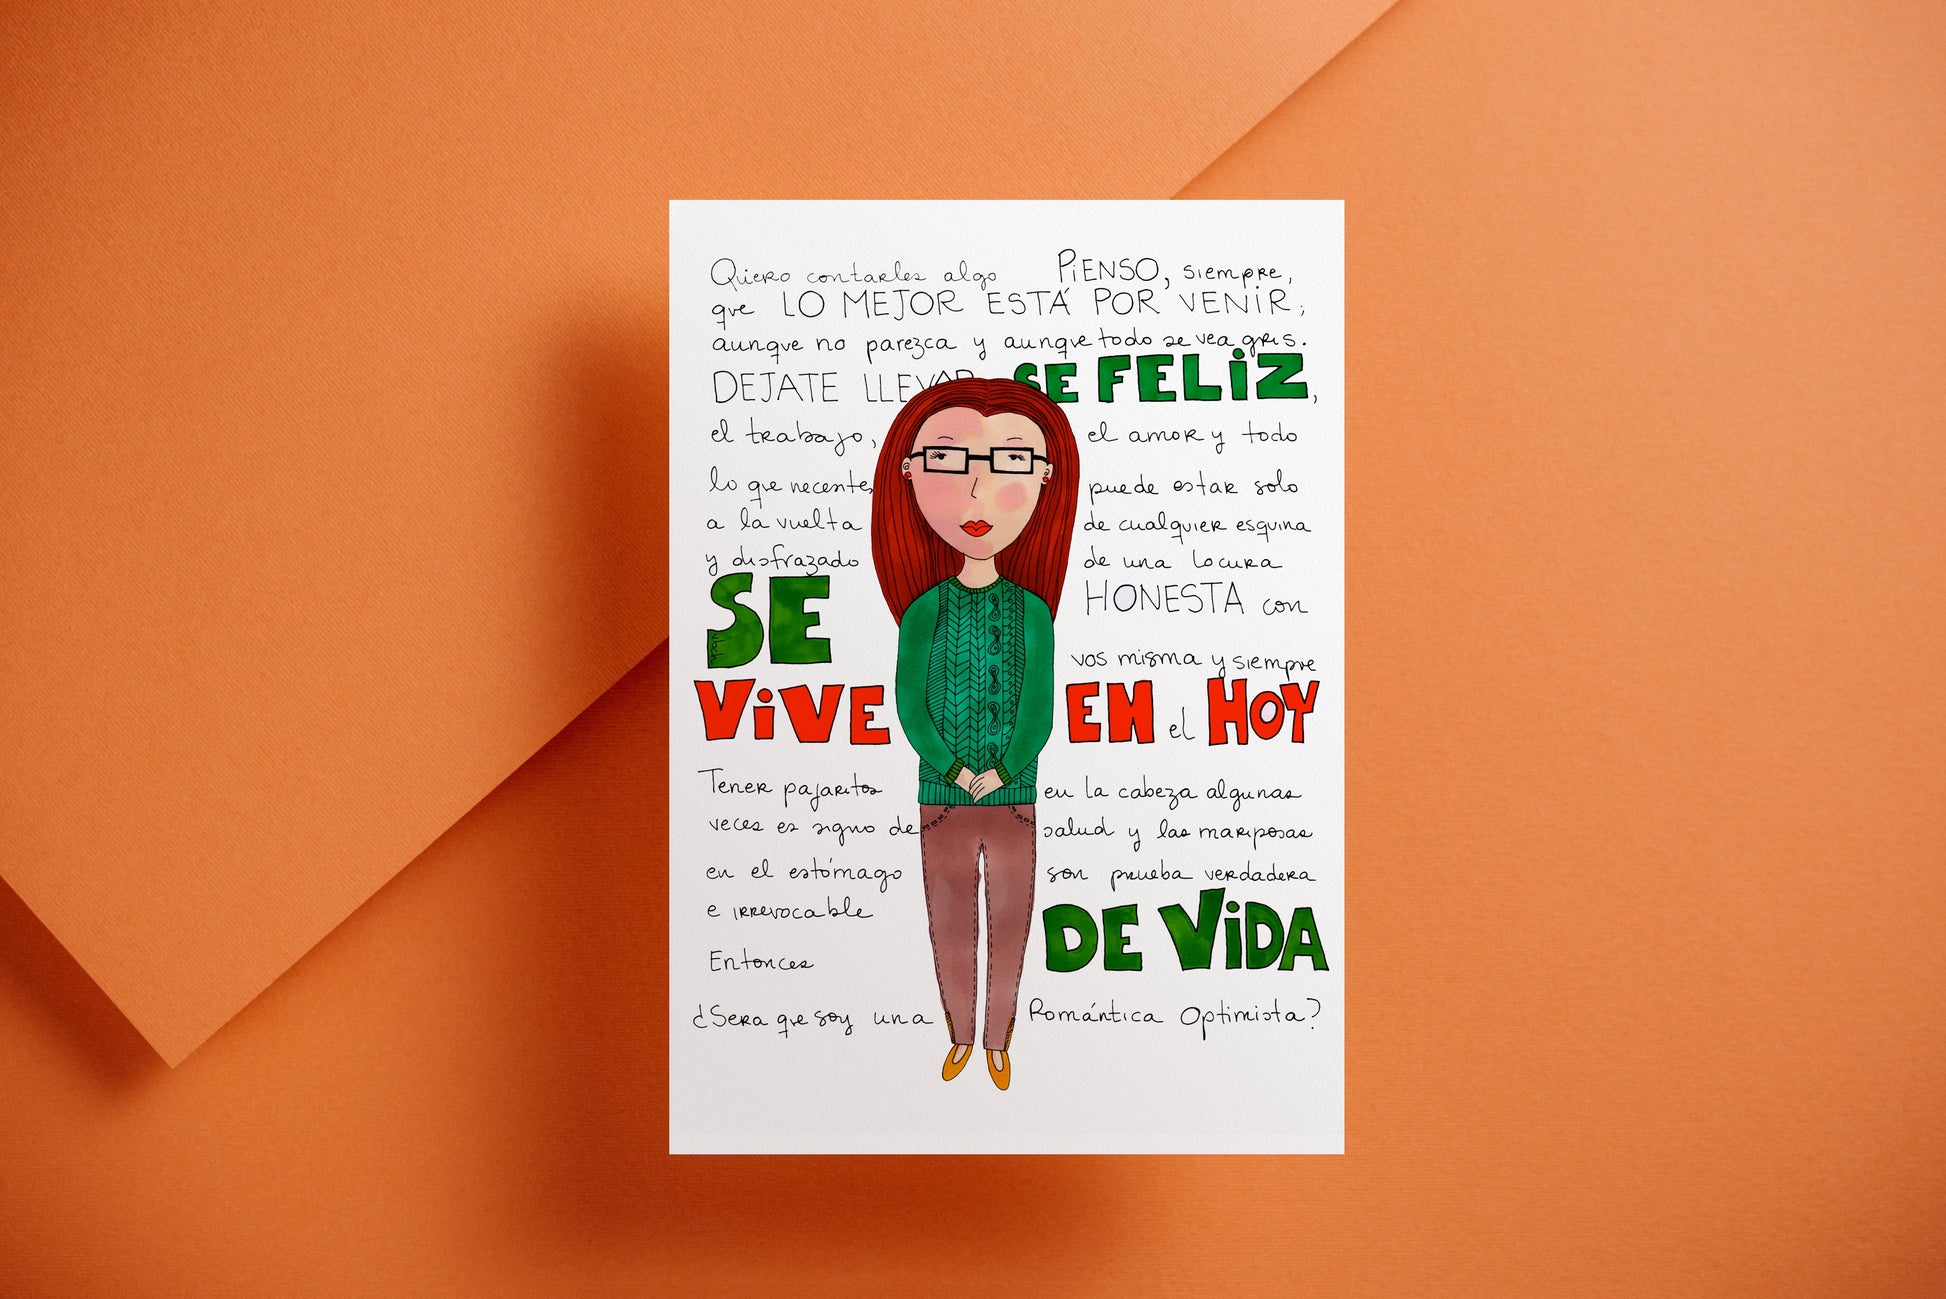 Quiero contarles algo PIENSO, siempre,
que LO MEJOR ESTÁ POR VENIR;
aunque no parezca y aunque todo se vea gris.
DEJATE LLEVAR SE FELIZ,
el trabajo, el amor y todo
lo que necesites puede estar solo
a la vuelta de cualquier esquina
y disfrazado de una locura
SE HONESTA con
vos misma y siempre
VIVE EN el HOY
Tener pajaritos en la cabeza algunas
veces es signo de salud y las mariposas
en el estómago son prueba verdadera
e irrevocable DE VIDA
Entonces
¿Sera que soy una Romántica Optimista?